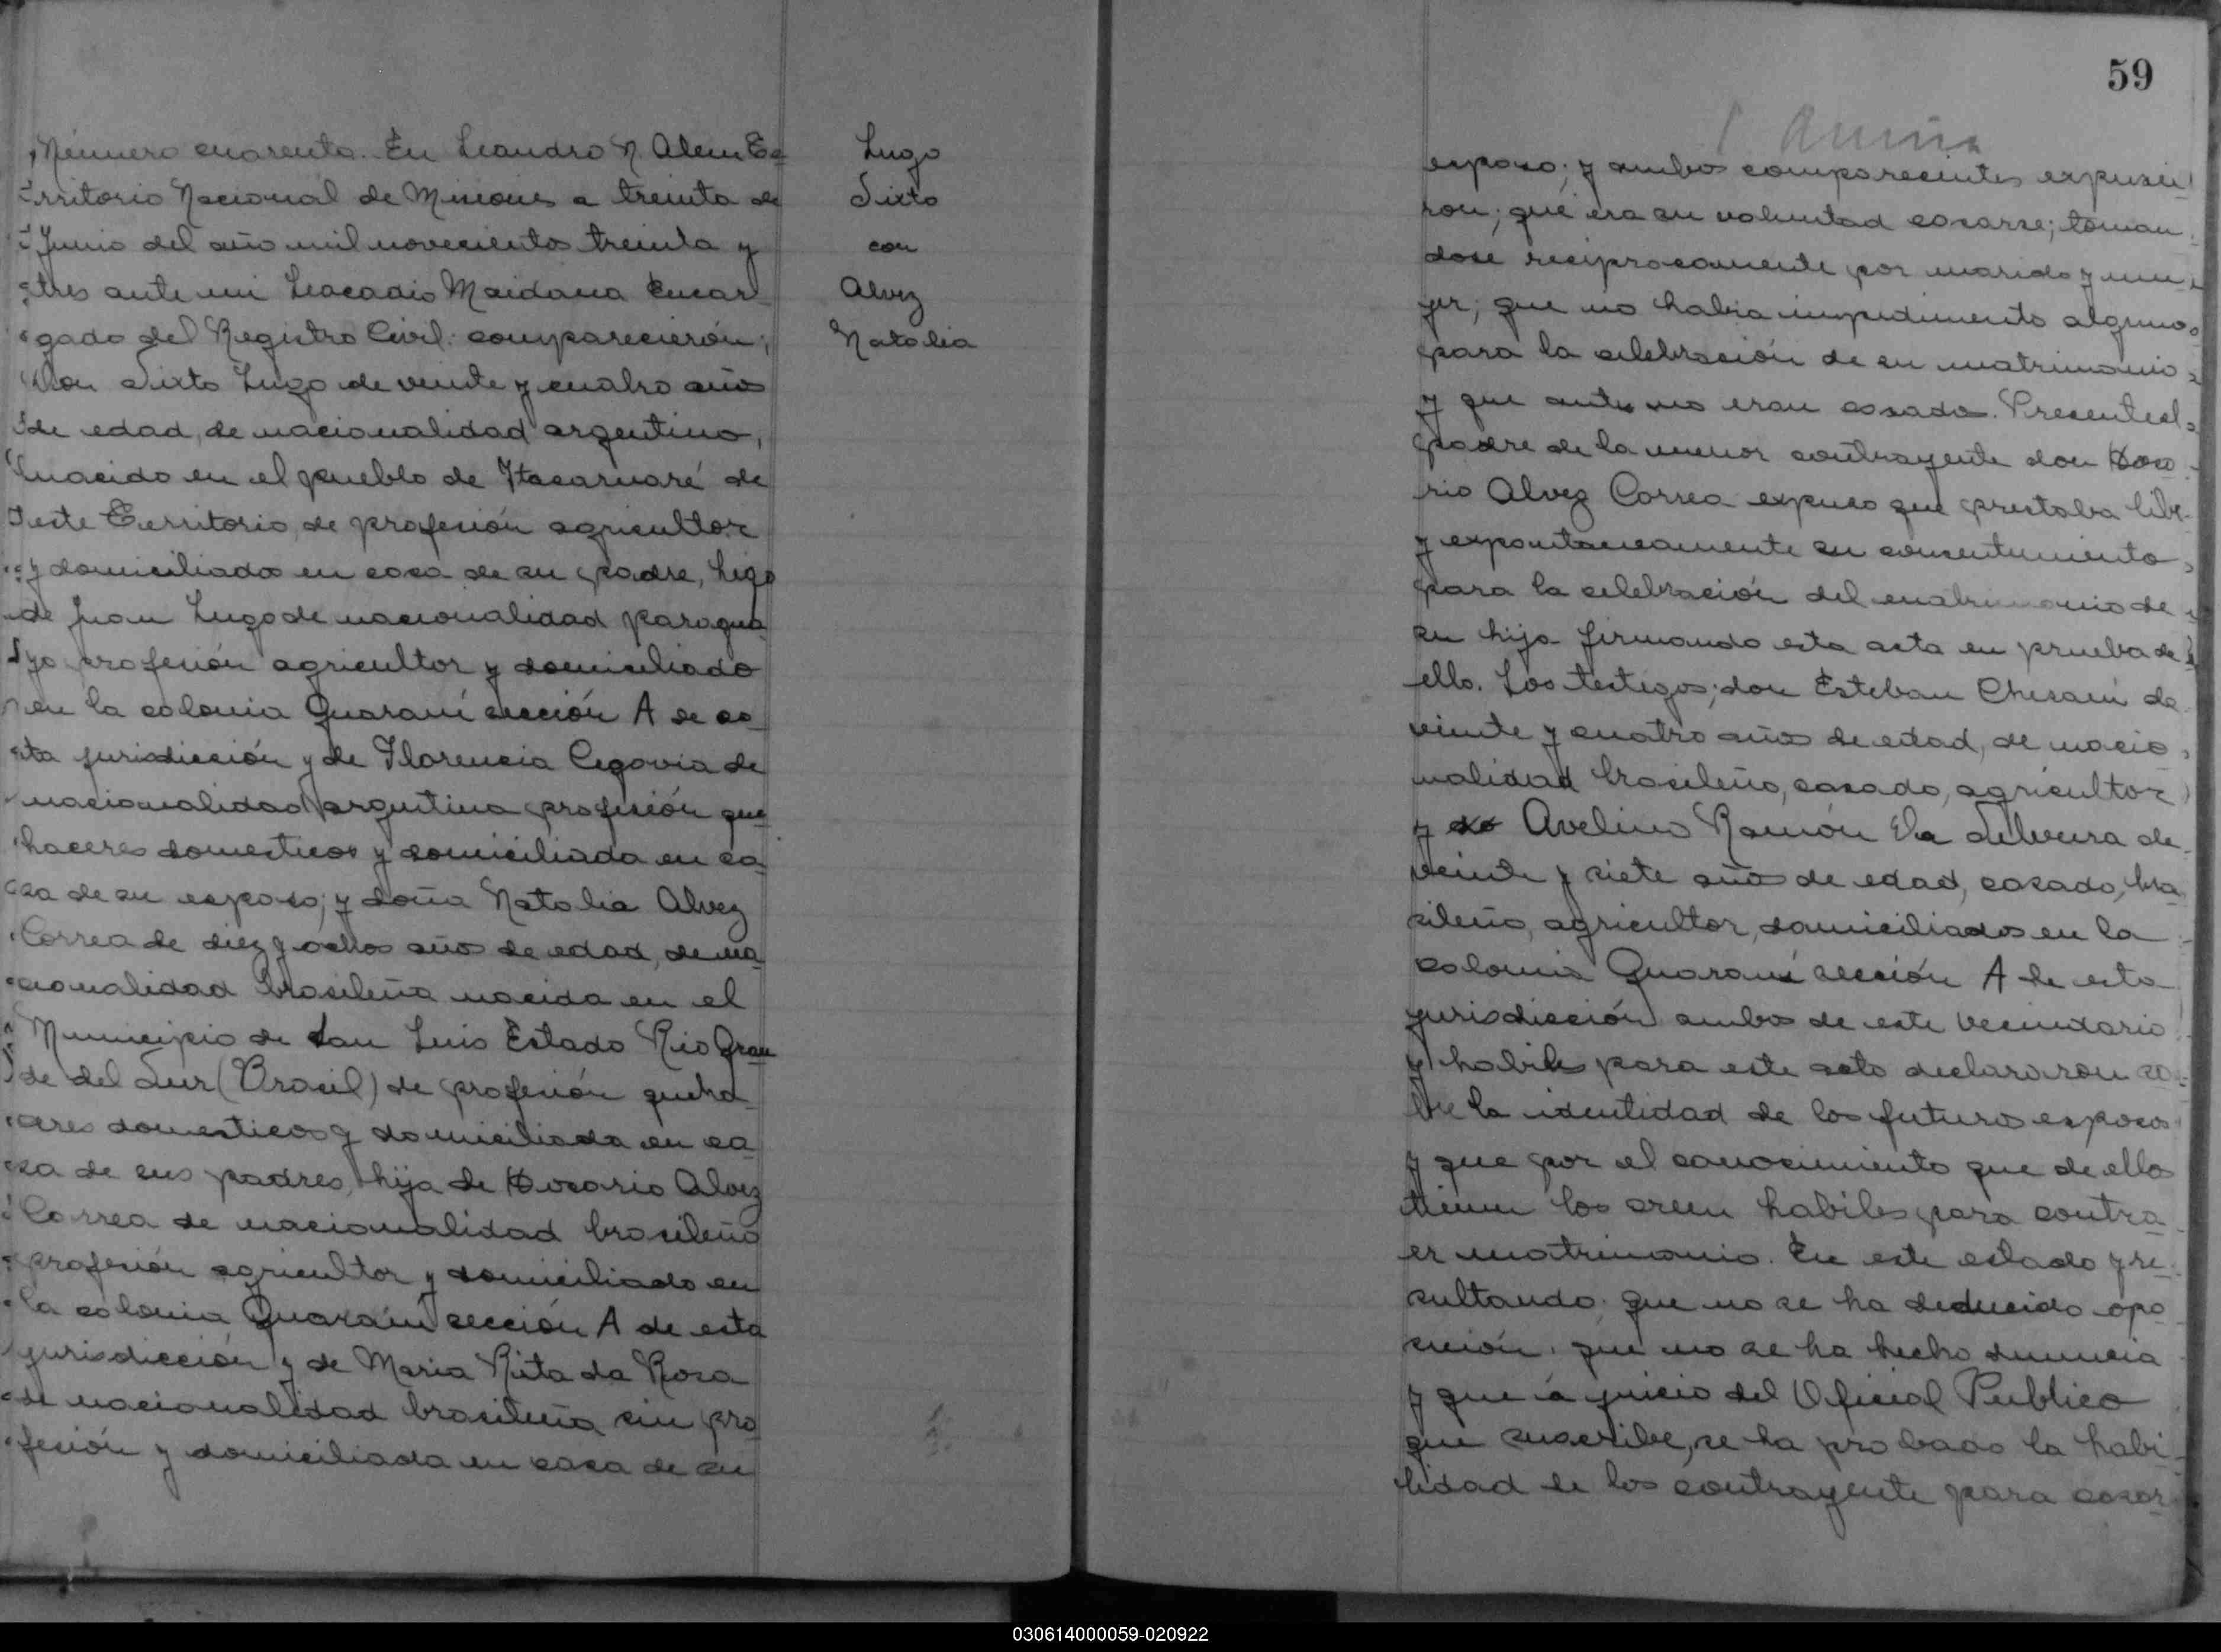 Número cuarenta. En Leandro N Alem Te
rritorio Nacional de Misiones a treinta de
Junio del año mil novecientos treinta y
tres ante mi Leocadio Maidana Encar
gado del Registro Civil: comparecierón;
Don Sixto Lugo de veinte y cuatro años
de edad, de nacionalidad argentino,
nacido en el pueblo de Itacaruaré de
este Territorio, de profesión agricultor
y domiciliado en casa de su padre, higo
de Juan Lugo de nacionalidad paragua
yo profesión agricultor y domiciliado
en la colonia Guaraní sección A de es
ta jurisdicción y de Florencia Cegovia de
nacionalidad argentina profesión que
haceres domesticos y domiciliada en ca
sa de su esposo; y doña Natalia Alvez
Correa de diez y ocho años de edad, de na
cionalidad brasileña nacida en el
Municipio de San Luis Estado Rio Gran
de del Sur (Brasil) de profesión queha
ceres domesticos y domiciliada en ca
sa de sus padres, hija de Dosorio Alvez
Correa de nacionalidad brasileño
profesión agricultor y domiciliado en
la colonia Guaraní sección A de esta
jurisdicción y de Maria Rita da Rosa
de nacionalidad brasileña sin pro
fesión y domiciliada en casa de su
Lugo
Sixto
con
Alvez
Natalia
59
esposo; y ambos comparecientes expusie
ron; que era su voluntad casarse; toman
dose reciprocamente por marido y mu
jer; que no habia impedimento alguno
para la celebración de su matrimonio
y que antes no eran casados. Presente el
padre de la menor contrayente don Doso
rio Alvez Correa expuso que prestaba libre
y expontaneamente su consentimiento
para la celebración del matrimonio de
su hija firmando esta acta en prueba de
ello. Los testigos; don Esteban Chesani de
veinte y cuatro años de edad, de nacio
nalidad brasileño, casado, agricultor
y Avelino Ramón Da Silveira de
veinte y siete años de edad, casado, bra
sileño, agricultor, domiciliados en la
colonia Guaraní sección A de esta
jurisdicción ambos de este vecindario
y habiles para este acto declararon so
bre la identidad de los futuros esposos
y que por el conocimiento que de ellos
tienen los creen habiles para contra
er matrimonio. En este estado y re
sultando que no se ha deducido opo
sición, que no se ha hecho denuncia
y que á juicio del Oficial Publico
que suscribe, se ha probado la habi
lidad de los contrayente para casar
030614000059-020922